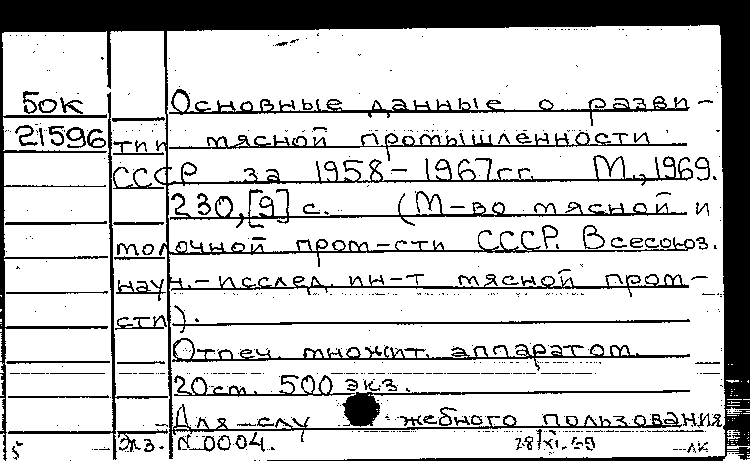 50к Основные данные о разви-
21596 тии мясной промышленности
СССР за 1958-1967гг. М., 1969.
230,[9] с. (М-во мясной и
молочной пром-сти СССР. Всесоюз.
науч.-исслед. ин-т мясной пром-
сти).
Отпеч. множит. аппаратом.
20см. 500 экз.
Для служебного пользования
5 Экз. N 0004. 28/XI.69 ЛК